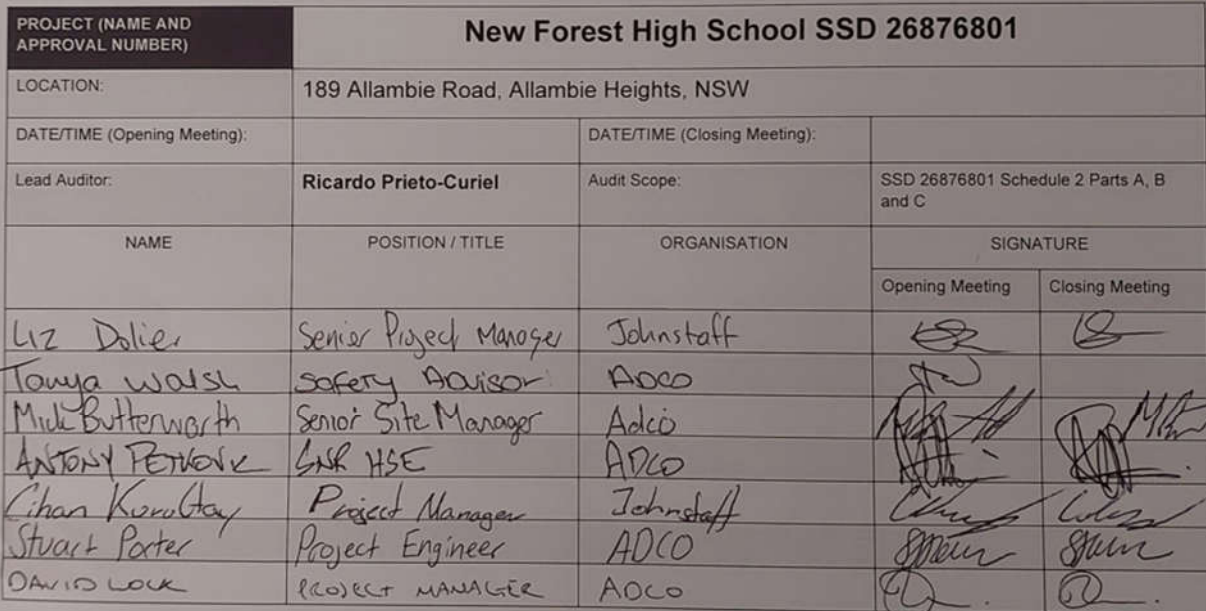 PROJECT (NAME AND APPROVAL NUMBER) New Forest High School SSD 26876801
LOCATION: 189 Allambie Road, Allambie Heights, NSW
DATE/TIME (Opening Meeting): DATE/TIME (Closing Meeting):
Lead Auditor: Ricardo Prieto-Curiel Audit Scope: SSD 26876801 Schedule 2 Parts A, B and C
NAME POSITION / TITLE ORGANISATION SIGNATURE
Opening Meeting Closing Meeting
Liz Dolier Senior Project Manager Johnstaff
Tanya Walsh Safety Advisor ADCO
Mick Butterworth Senior Site Manager Adco
ANTONY SNR HSE ADCO
Cihan Project Manager Johnstaff
Stuart Porter Project Engineer ADCO
DAVID LOCK PROJECT MANAGER ADCO